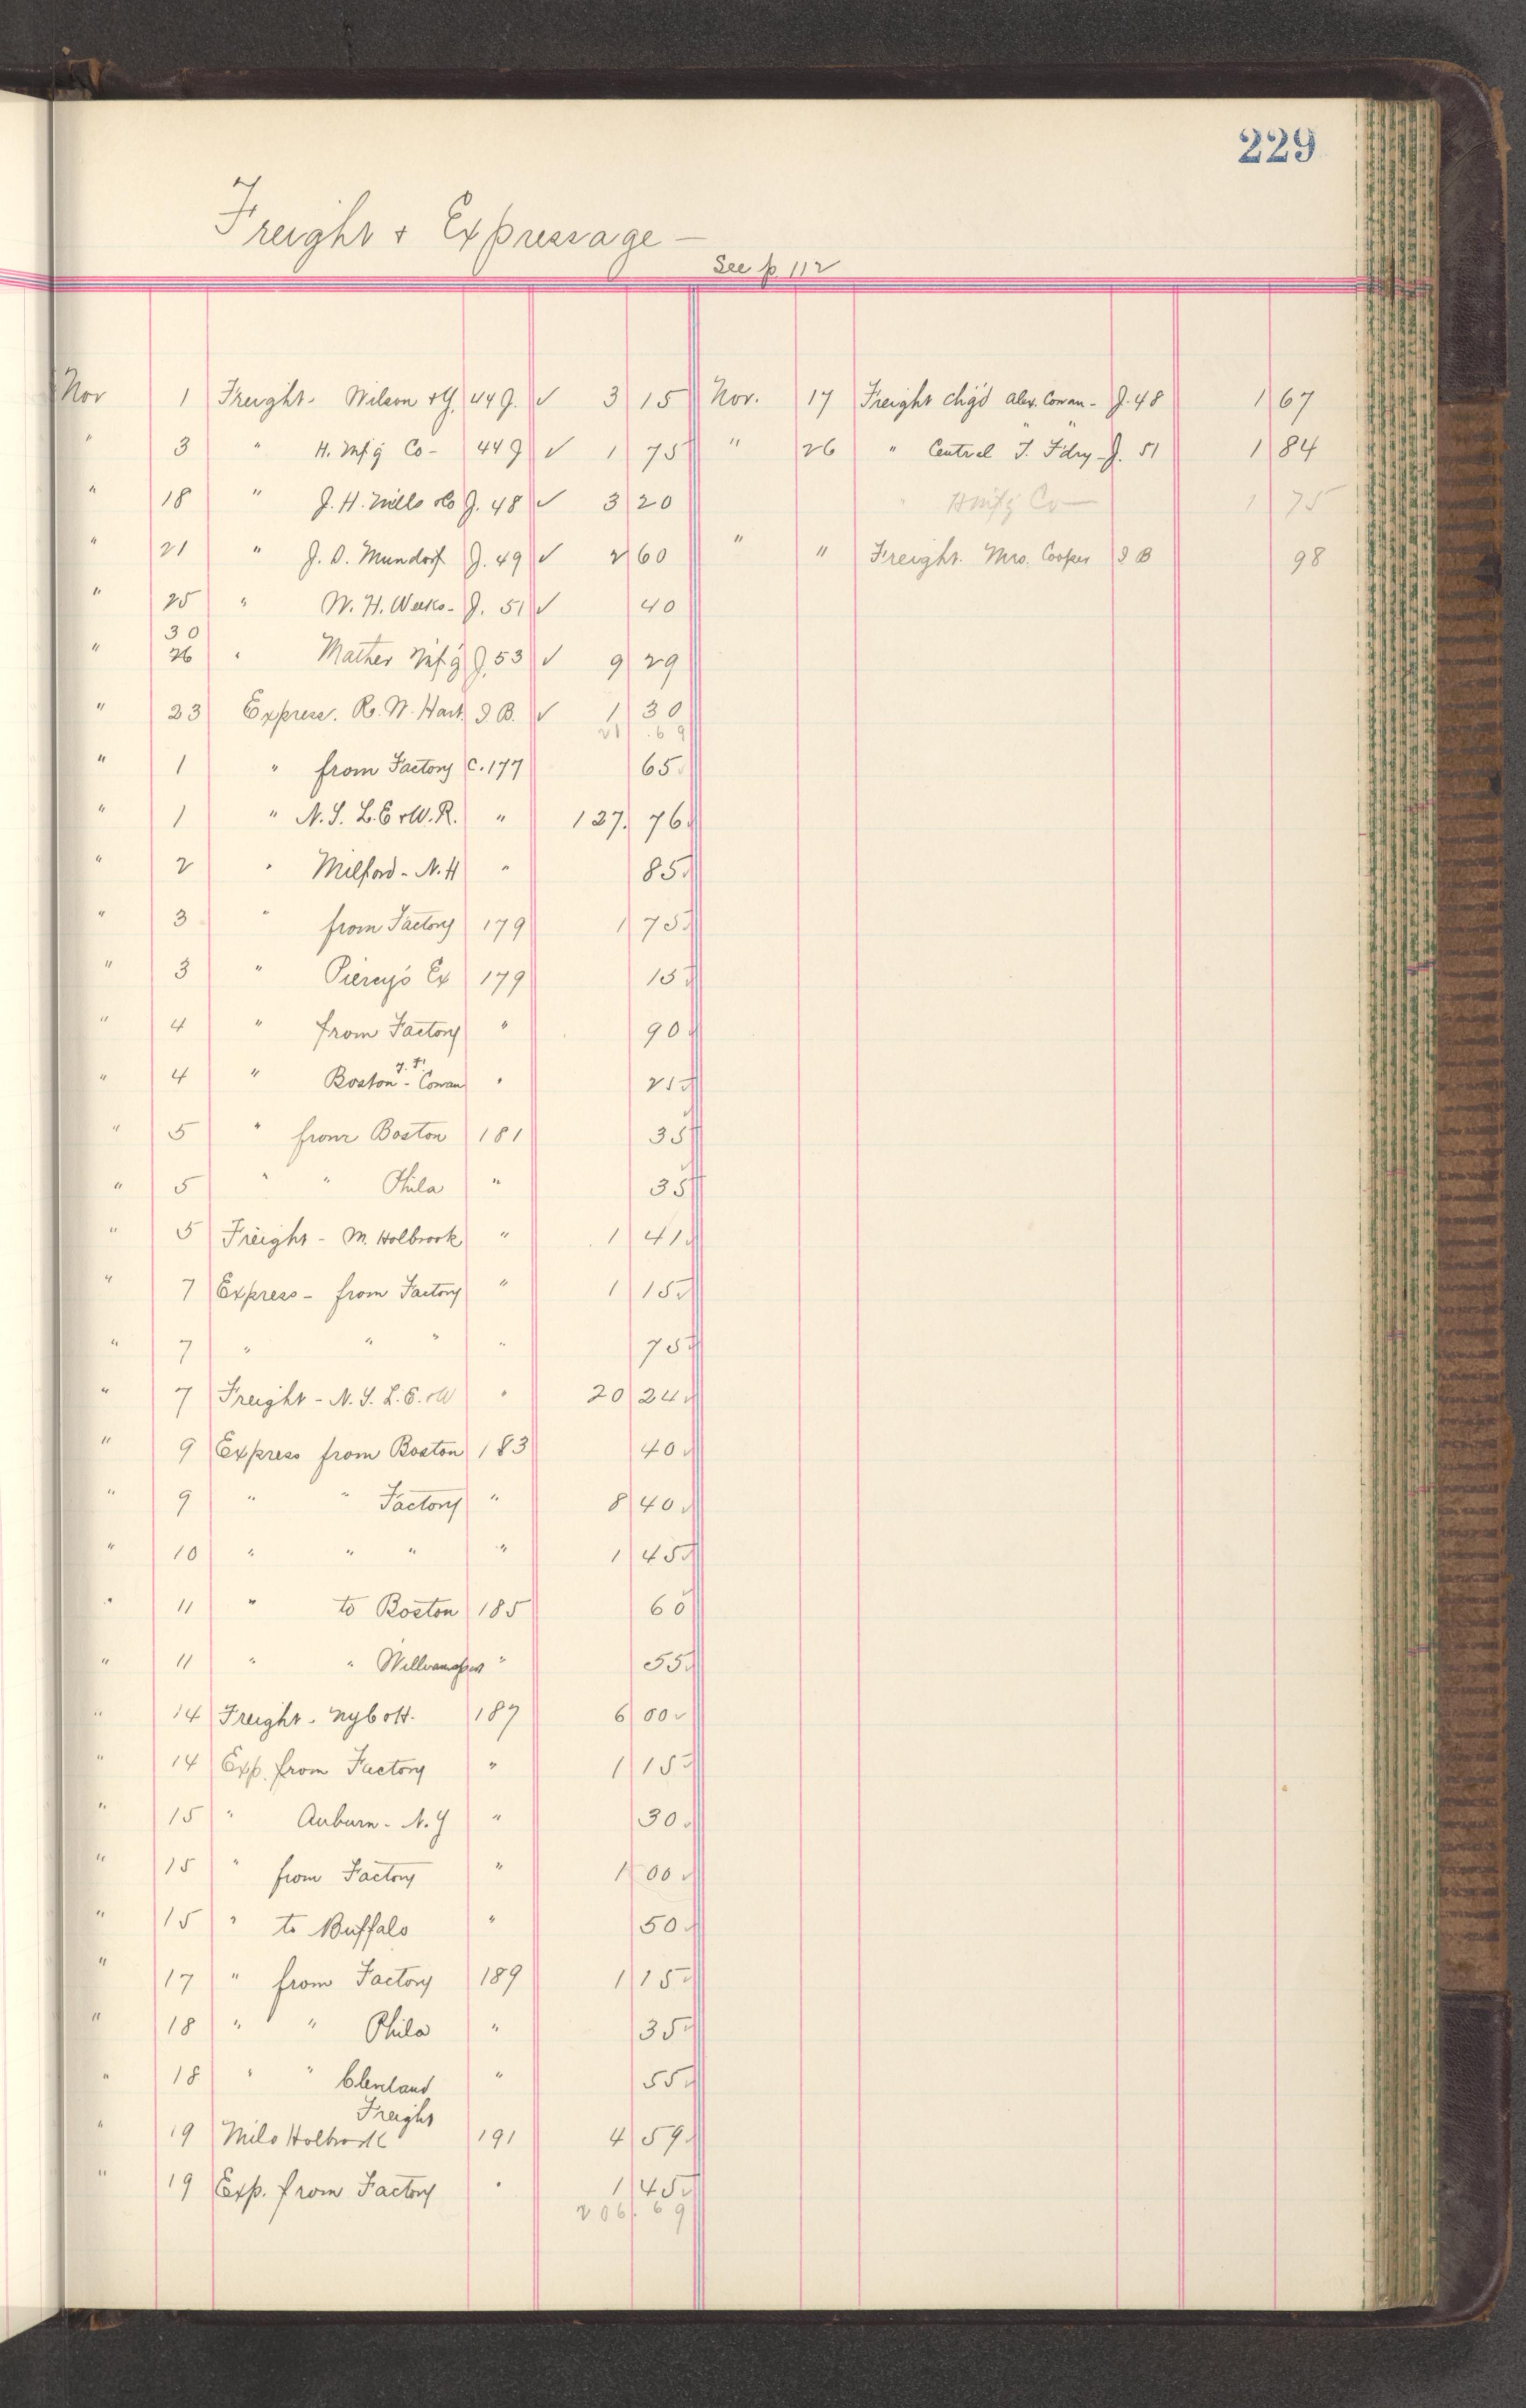 229
Freight & Expressage —
See p. 112
Nov 1 Freight - Wilson & G. 44 J. ✓ 3 15
" 3 " H. Mfg Co - 44 J ✓ 1 75
" 18 " J. H. Mills & Co J. 48 ✓ 3 20
" 21 " J. D. Mundorf J. 49 ✓ 2 60
" 25 " W. H. Weeks - J. 51 ✓ 40
30
" 26 " Mather Mf'g J. 53 ✓ 9 29
" 23 Express. R. W. Hart. I B. ✓ 1 30
21 .69
" 1 " from Factory C. 177 65
" 1 " N.Y. L.E. & W.R. " 127. 76
" 2 " Milford - N.H " 85
" 3 " from Factory 179 1 75
" 3 " Piercy's Ex 179 15
" 4 " from Factory " 90
" 4 " Boston - Cowan " 25
" 5 " from Boston 181 35
" 5 " " Phila " 35
" 5 Freight - M. Holbrook " 1 41
" 7 Express - from Factory " 1 15
" 7 " " " " 75
" 7 Freight - N.Y. L.E. & W " 20 24
" 9 Express from Boston 183 40
" 9 " " Factory " 8 40
" 10 " " " " 1 45
" 11 " to Boston 185 60
" 11 " " Williamsport " 55
" 14 Freight - NYC & H. 187 6 00
" 14 Exp. from Factory " 1 15
" 15 " Auburn - N.Y " 30
" 15 " from Factory " 1 00
" 15 " to Buffalo " 50
" 17 " from Factory 189 1 15
" 18 " " Phila " 35
" 18 " " Cleveland " 55
Freight
" 19 Milo Holbrook 191 4 59
" 19 Exp. from Factory " 1 45
206. 69
Nov. 17 Freight chg'd Alex. Cowan - J. 48 1 67
" 26 " " " Central T. F'dry - J. 51 1 84
" H Mf'g Co — 1 75
" " Freight. Mrs. Cooper I B 98